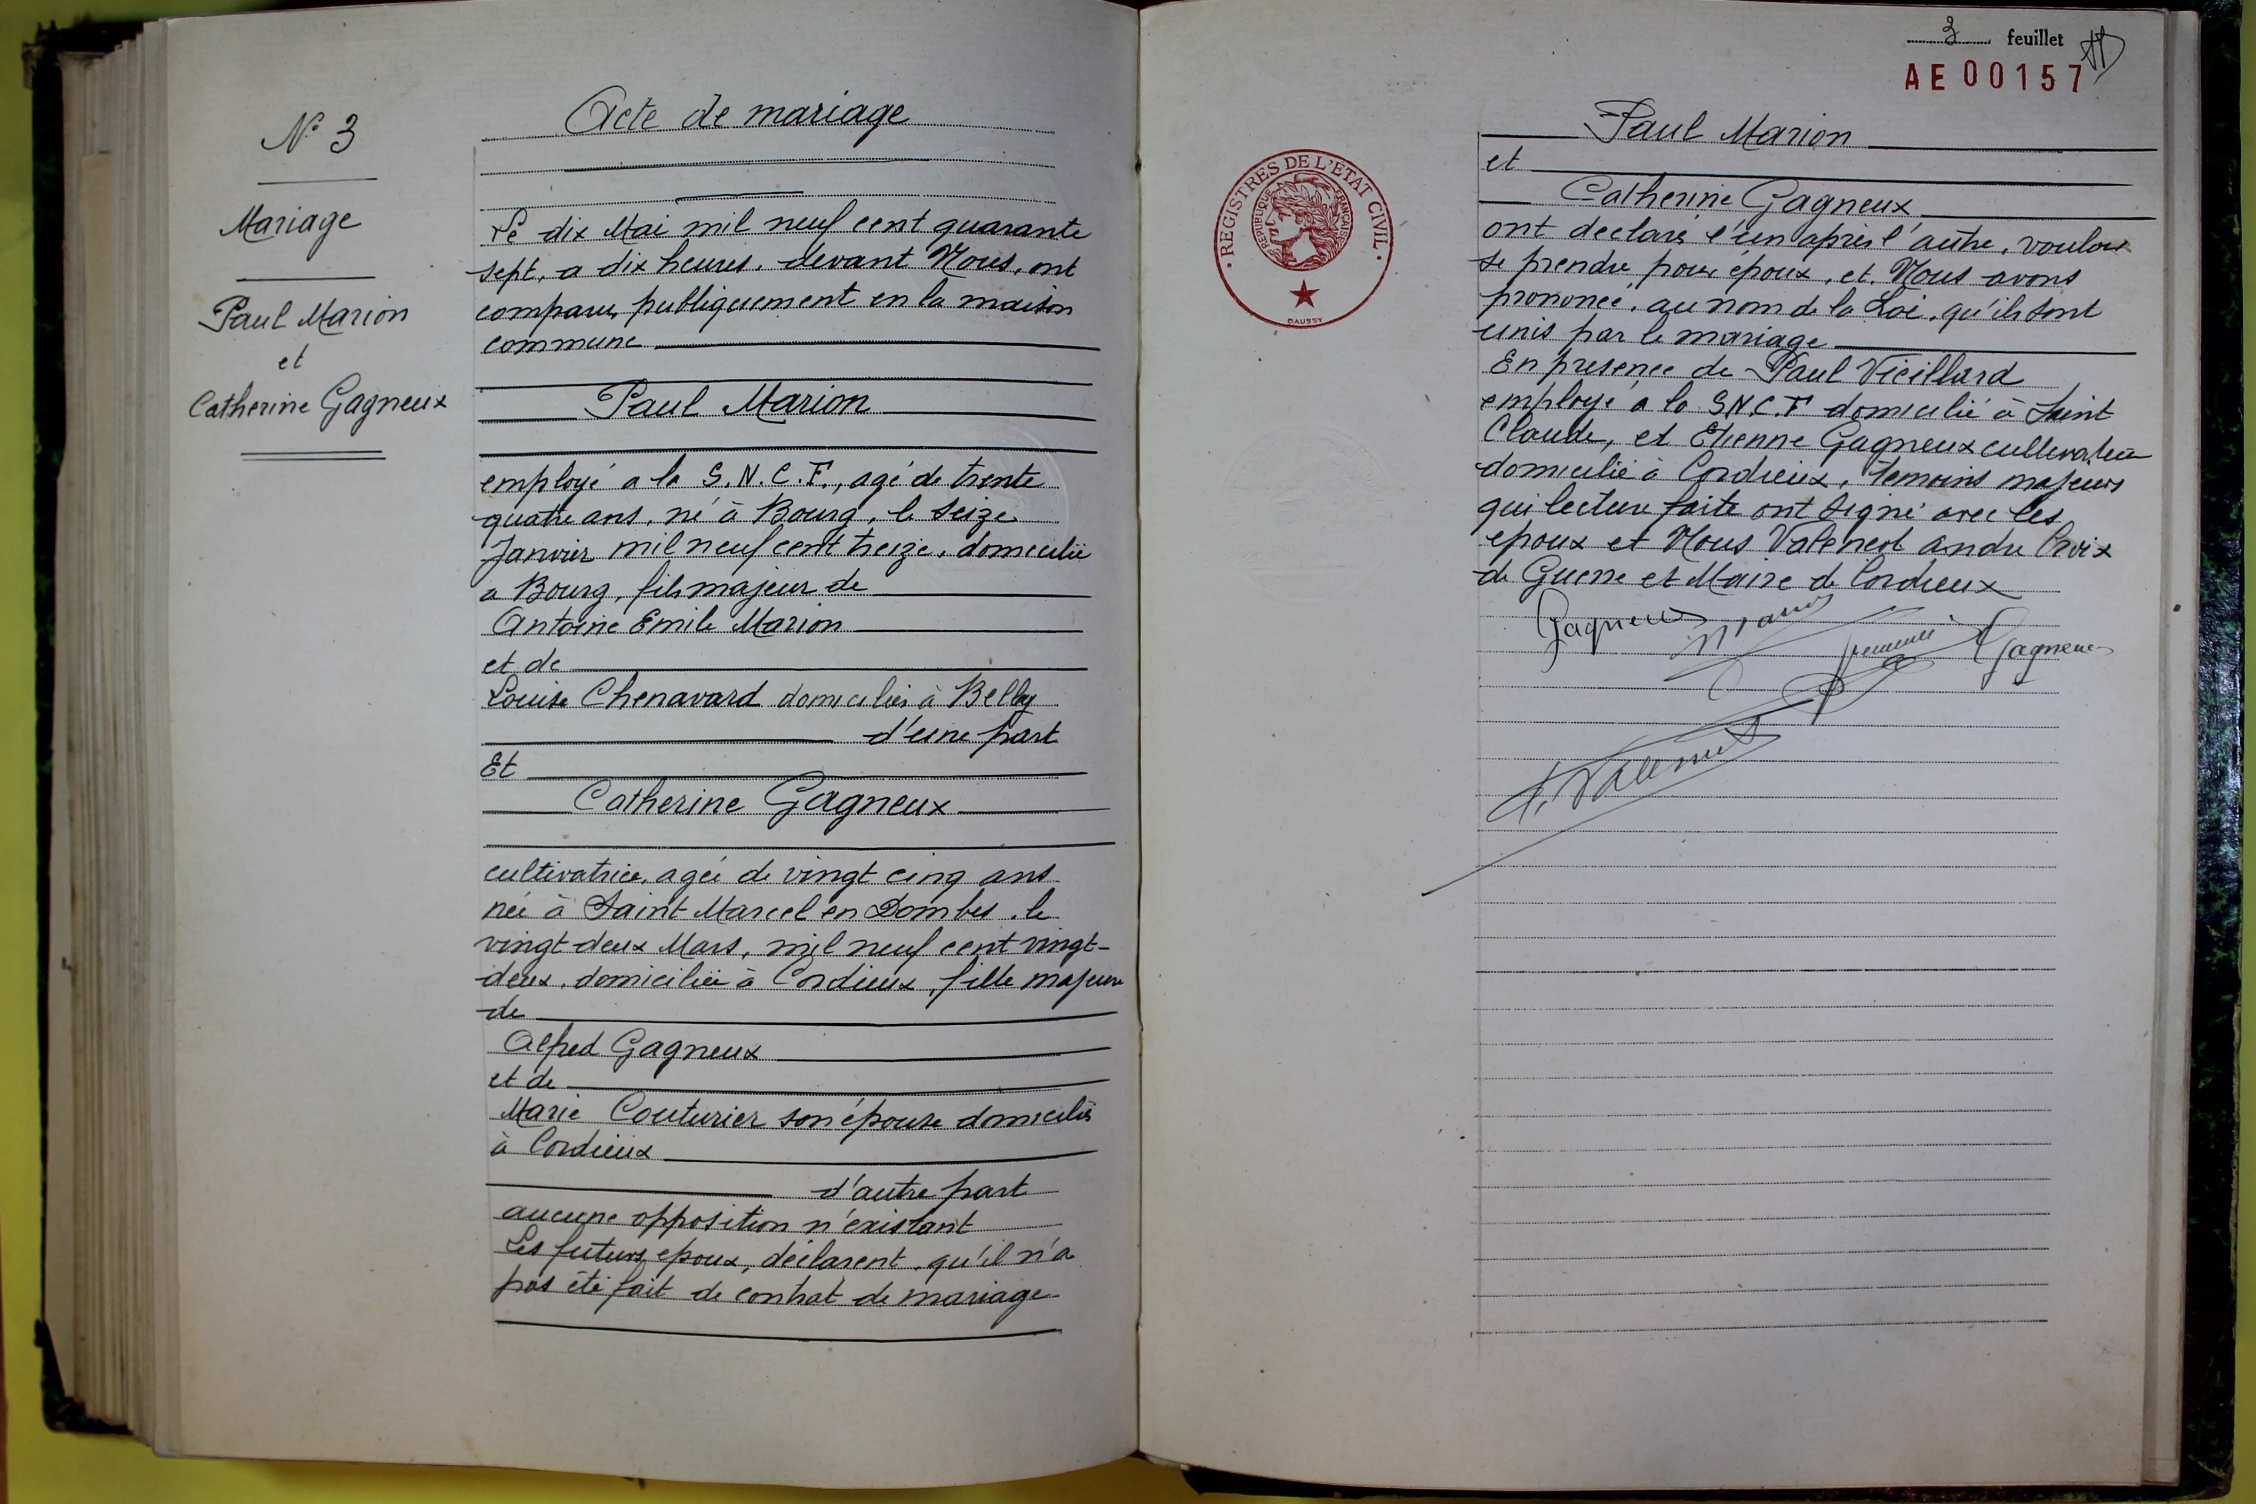 N° 3
Mariage
Paul Marion
et
Catherine Gagneux
Acte de mariage
Le dix Mai mil neuf cent quarante
sept, a dix heures. devant Nous, ont
comparu publiquement en la maison
commune
Paul Marion
employé a la S.N.C.F., agé de trente
quatre ans, né à Bourg, le seize
Janvier mil neuf cent treize, domicilié
a Bourg, fils majeur de
Antoine Emile Marion
et de
Louise Chenavard domiciliés à Belley
d'une part
Et
Catherine Gagneux
cultivatrice, agée de vingt cinq ans
née à Saint Marcel en Dombes. le
vingt deux Mars, mil neuf cent vingt-
deux, domiciliée à Cordieux, fille majeure
de
Alfred Gagneux
et de
Marie Couturier son épouse domiciliés
à Cordieux
d'autre part
aucune opposition n'existant
Les futurs epoux, déclarent, qu'il n'a
pas été fait de contrat de mariage
3 feuillet
AE 00157
REGISTRES DE L'ÉTAT CIVIL
RÉPUBLIQUE FRANÇAISE
DAUSSY
Paul Marion
et
Catherine Gagneux
ont declaré l'un après l'autre, vouloir
se prendre pour époux, et Nous avons
prononcé, au nom de la Loi, qu'ils sont
unis par le mariage
En presence de Paul Vieillard
employé a la S.N.C.F domicilié à Saint
Claude, et Etienne Gagneux cultivateur
domicilié à Cordieux, temoins majeurs
qui lecture faite ont signé avec les
epoux et Nous Valenest andre Croix
de Guerre et Maire de Cordieux
Gagneux
Gagneux